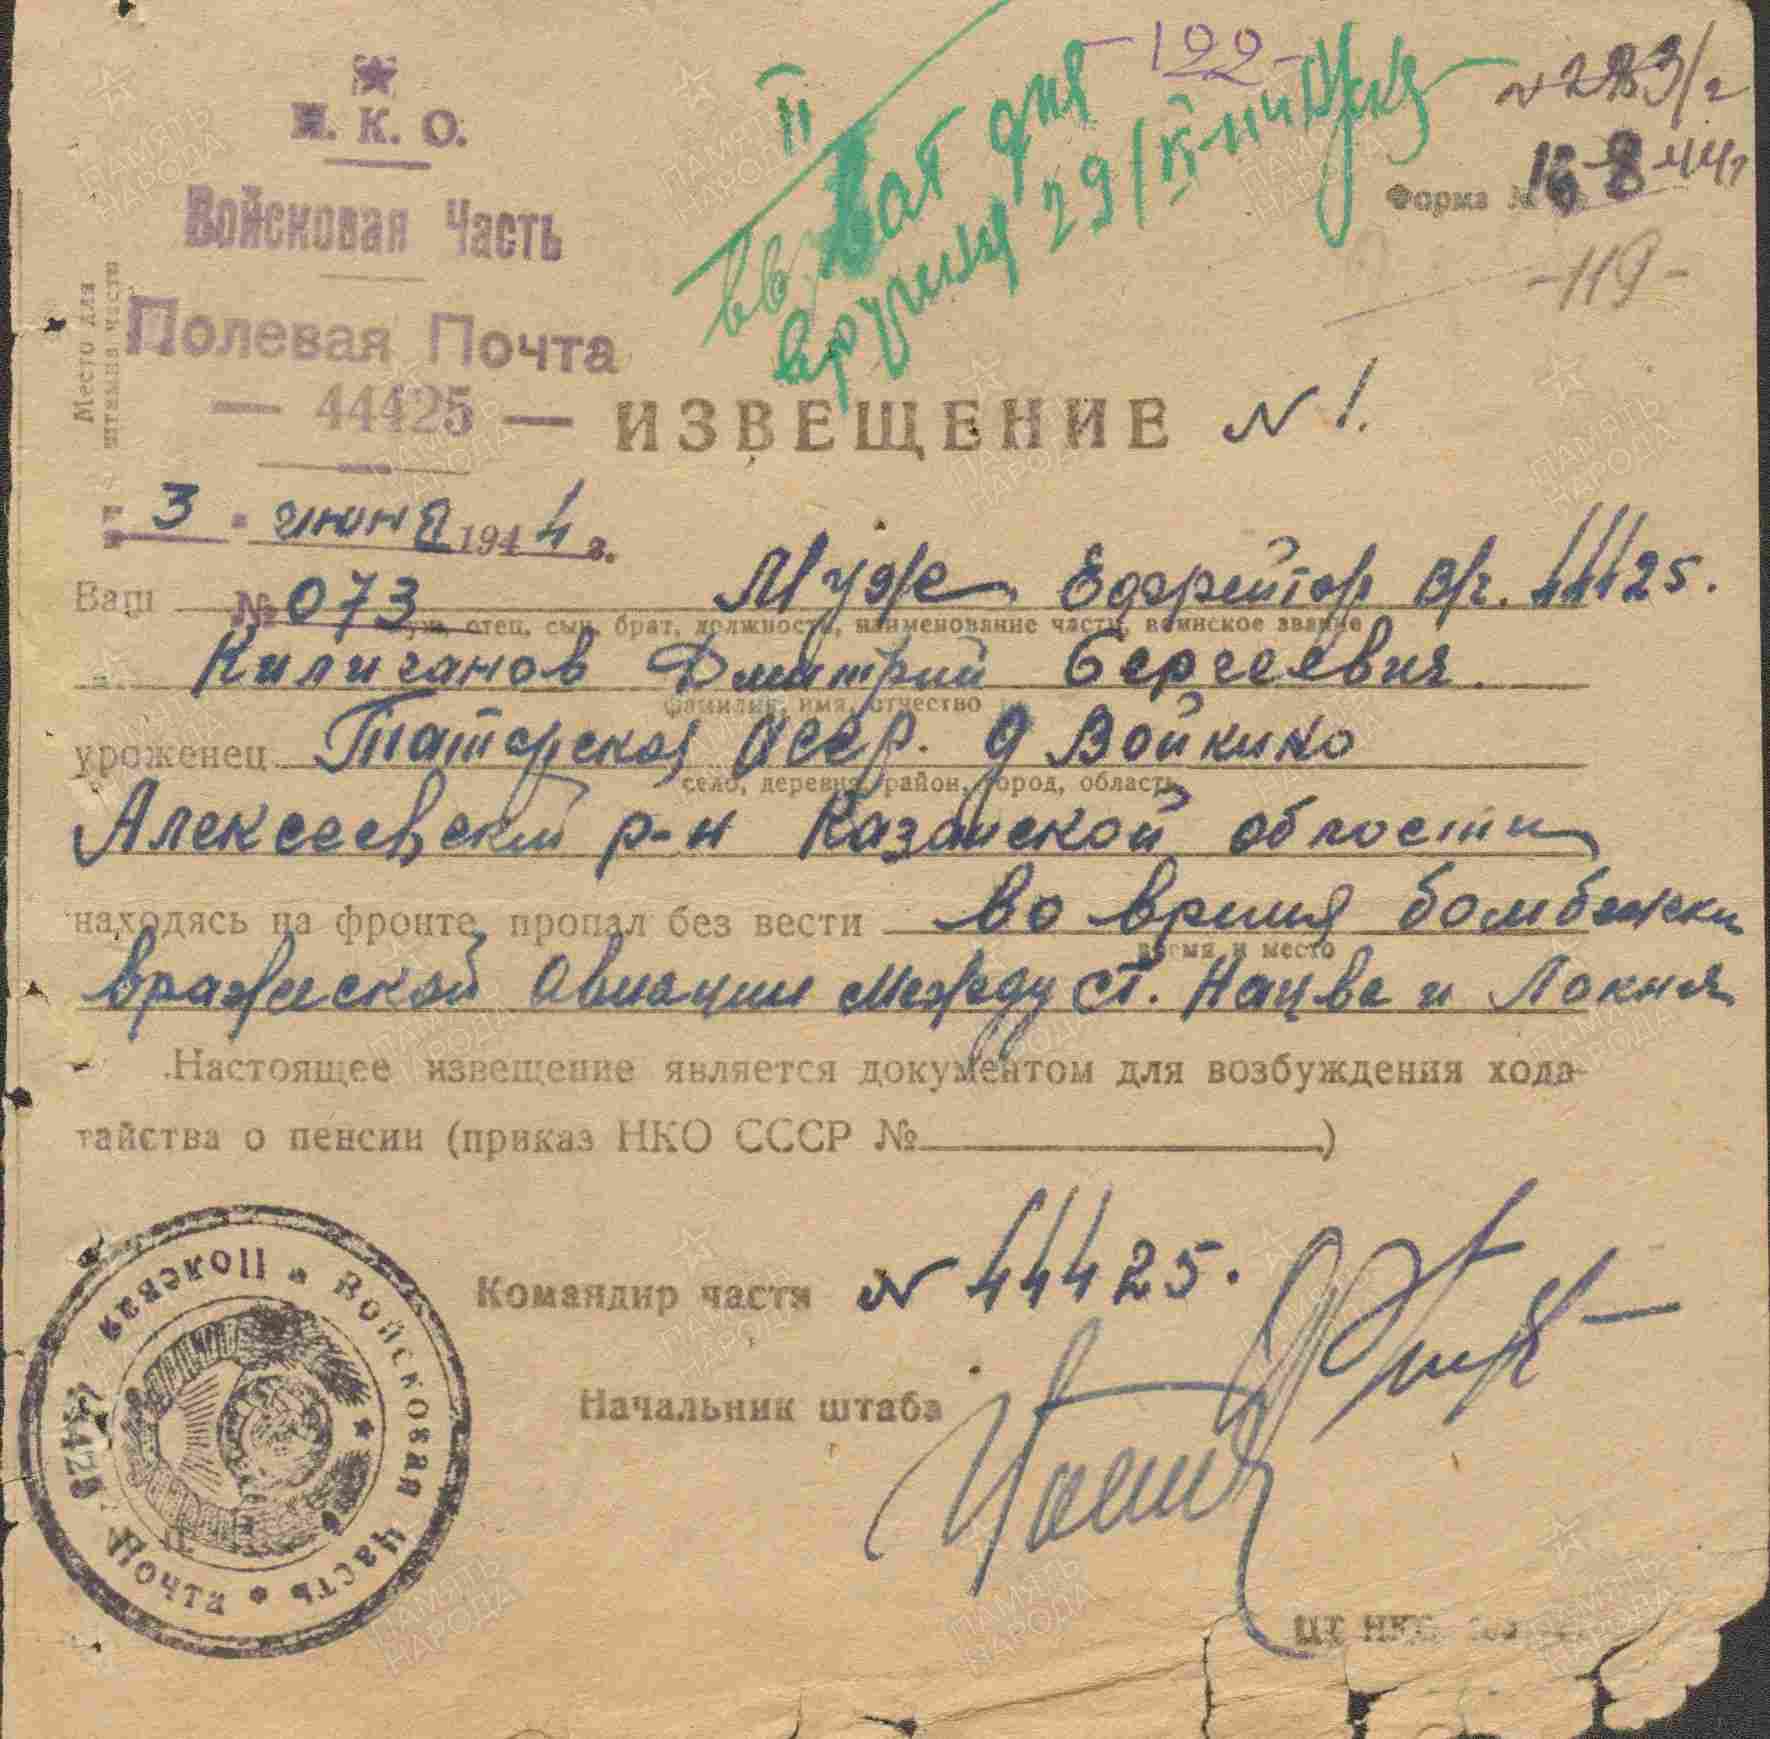 Н. К. О.
Войсковая Часть
Полевая Почта
— 44425 —
-122-
№ 283/2
16-8-44г
Форма №
-119-
II
вручили 29/
Место для
штампа части
ИЗВЕЩЕНИЕ № 1.
" 3 " июня 1944 г.
№ 073
Ваш Муж Ефрейтор в/ч. 44425.
муж, отец, сын, брат, должность, наименование части, воинское звание
Килиганов Дмитрий Сергеевич.
фамилия, имя, отчество
уроженец Татарская АССР. д Войкино
село, деревня, район, город, область
Алексеевский р-н Казанской области
находясь на фронте, пропал без вести во время бомбежки
время и место
вражеской авиации между ст. Насва и Локня
Настоящее извещение является документом для возбуждения хода-
тайства о пенсии (приказ НКО СССР № )
Командир части № 44425.
Начальник штаба
Войсковая Часть • Полевая Почта 44425
ПАМЯТЬ НАРОДА